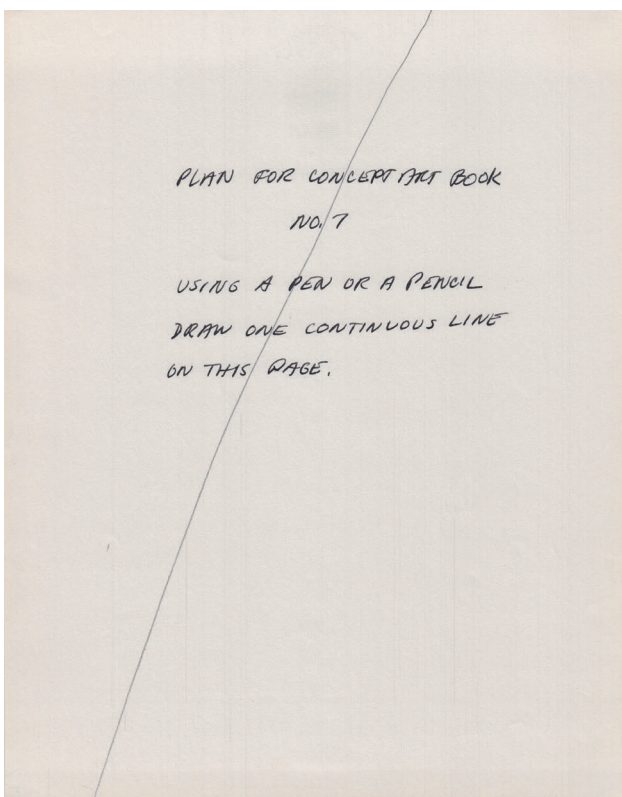 PLAN FOR CONCEPT ART BOOK
NO. 7
USING A PEN OR A PENCIL
DRAW ONE CONTINUOUS LINE
ON THIS PAGE.